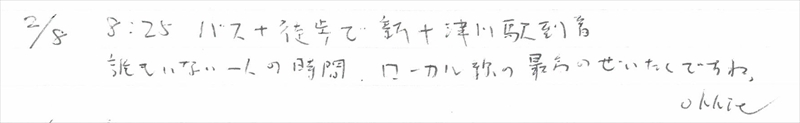 2/8 8:25 バス+徒歩で新十津川駅到着
誰もいない一人の時間、ローカル線の最高のぜいたくですね。